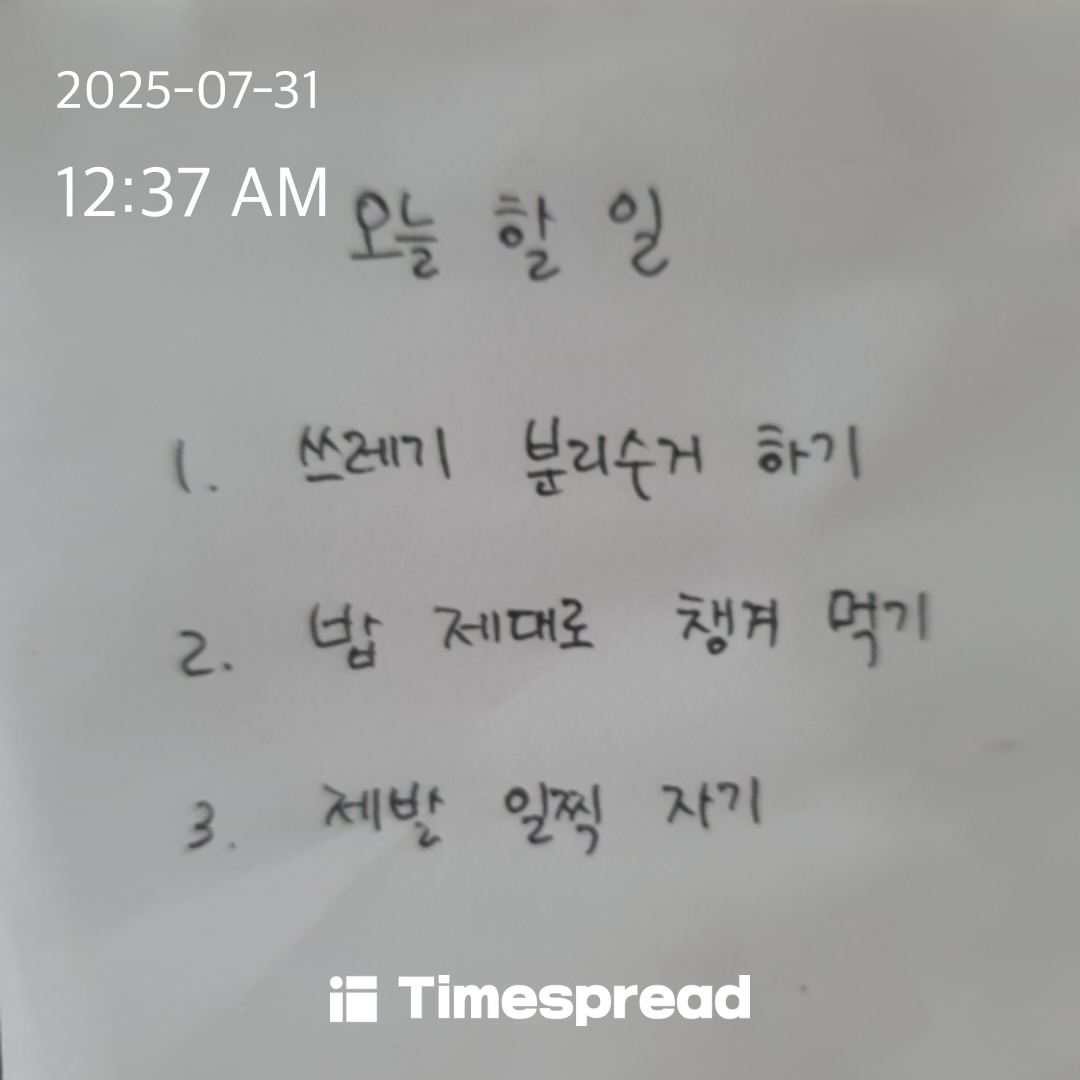 2025-07-31
12:37 AM
오늘 할 일
1. 쓰레기 분리수거 하기
2. 밥 제대로 챙겨 먹기
3. 제발 일찍 자기
Timespread